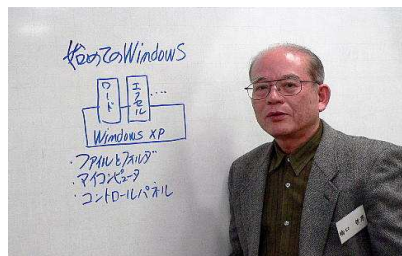 始めてのWindows
ワード
エクセル
....
Windows XP
・ファイルとフォルダ
・マイコンピュータ
・コントロールパネル